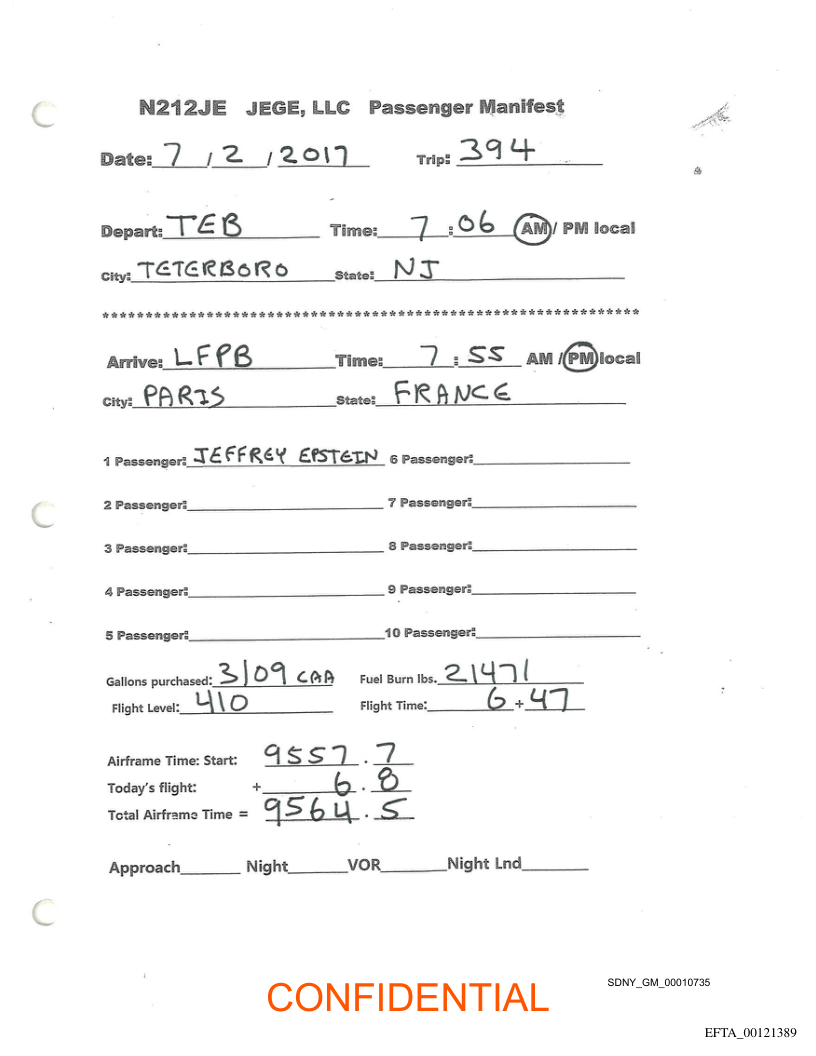 N212JE JEGE, LLC Passenger Manifest
Date: 7 / 2 / 2017 Trip: 394
Depart: TEB Time: 7 : 06 AM / PM local
City: TETERBORO State: NJ
****************************************************************
Arrive: LFPB Time: 7 : 55 AM / PM local
City: PARIS State: FRANCE
1 Passenger: JEFFREY EPSTEIN 6 Passenger:
2 Passenger: 7 Passenger:
3 Passenger: 8 Passenger:
4 Passenger: 9 Passenger:
5 Passenger: 10 Passenger:
Gallons purchased: 3109 CAA Fuel Burn lbs. 21471
Flight Level: 410 Flight Time: 6 + 47
Airframe Time: Start: 9557 . 7
Today's flight: + 6 . 8
Total Airframe Time = 9564 . 5
Approach Night VOR Night Lnd
SDNY_GM_00010735
CONFIDENTIAL
EFTA_00121389